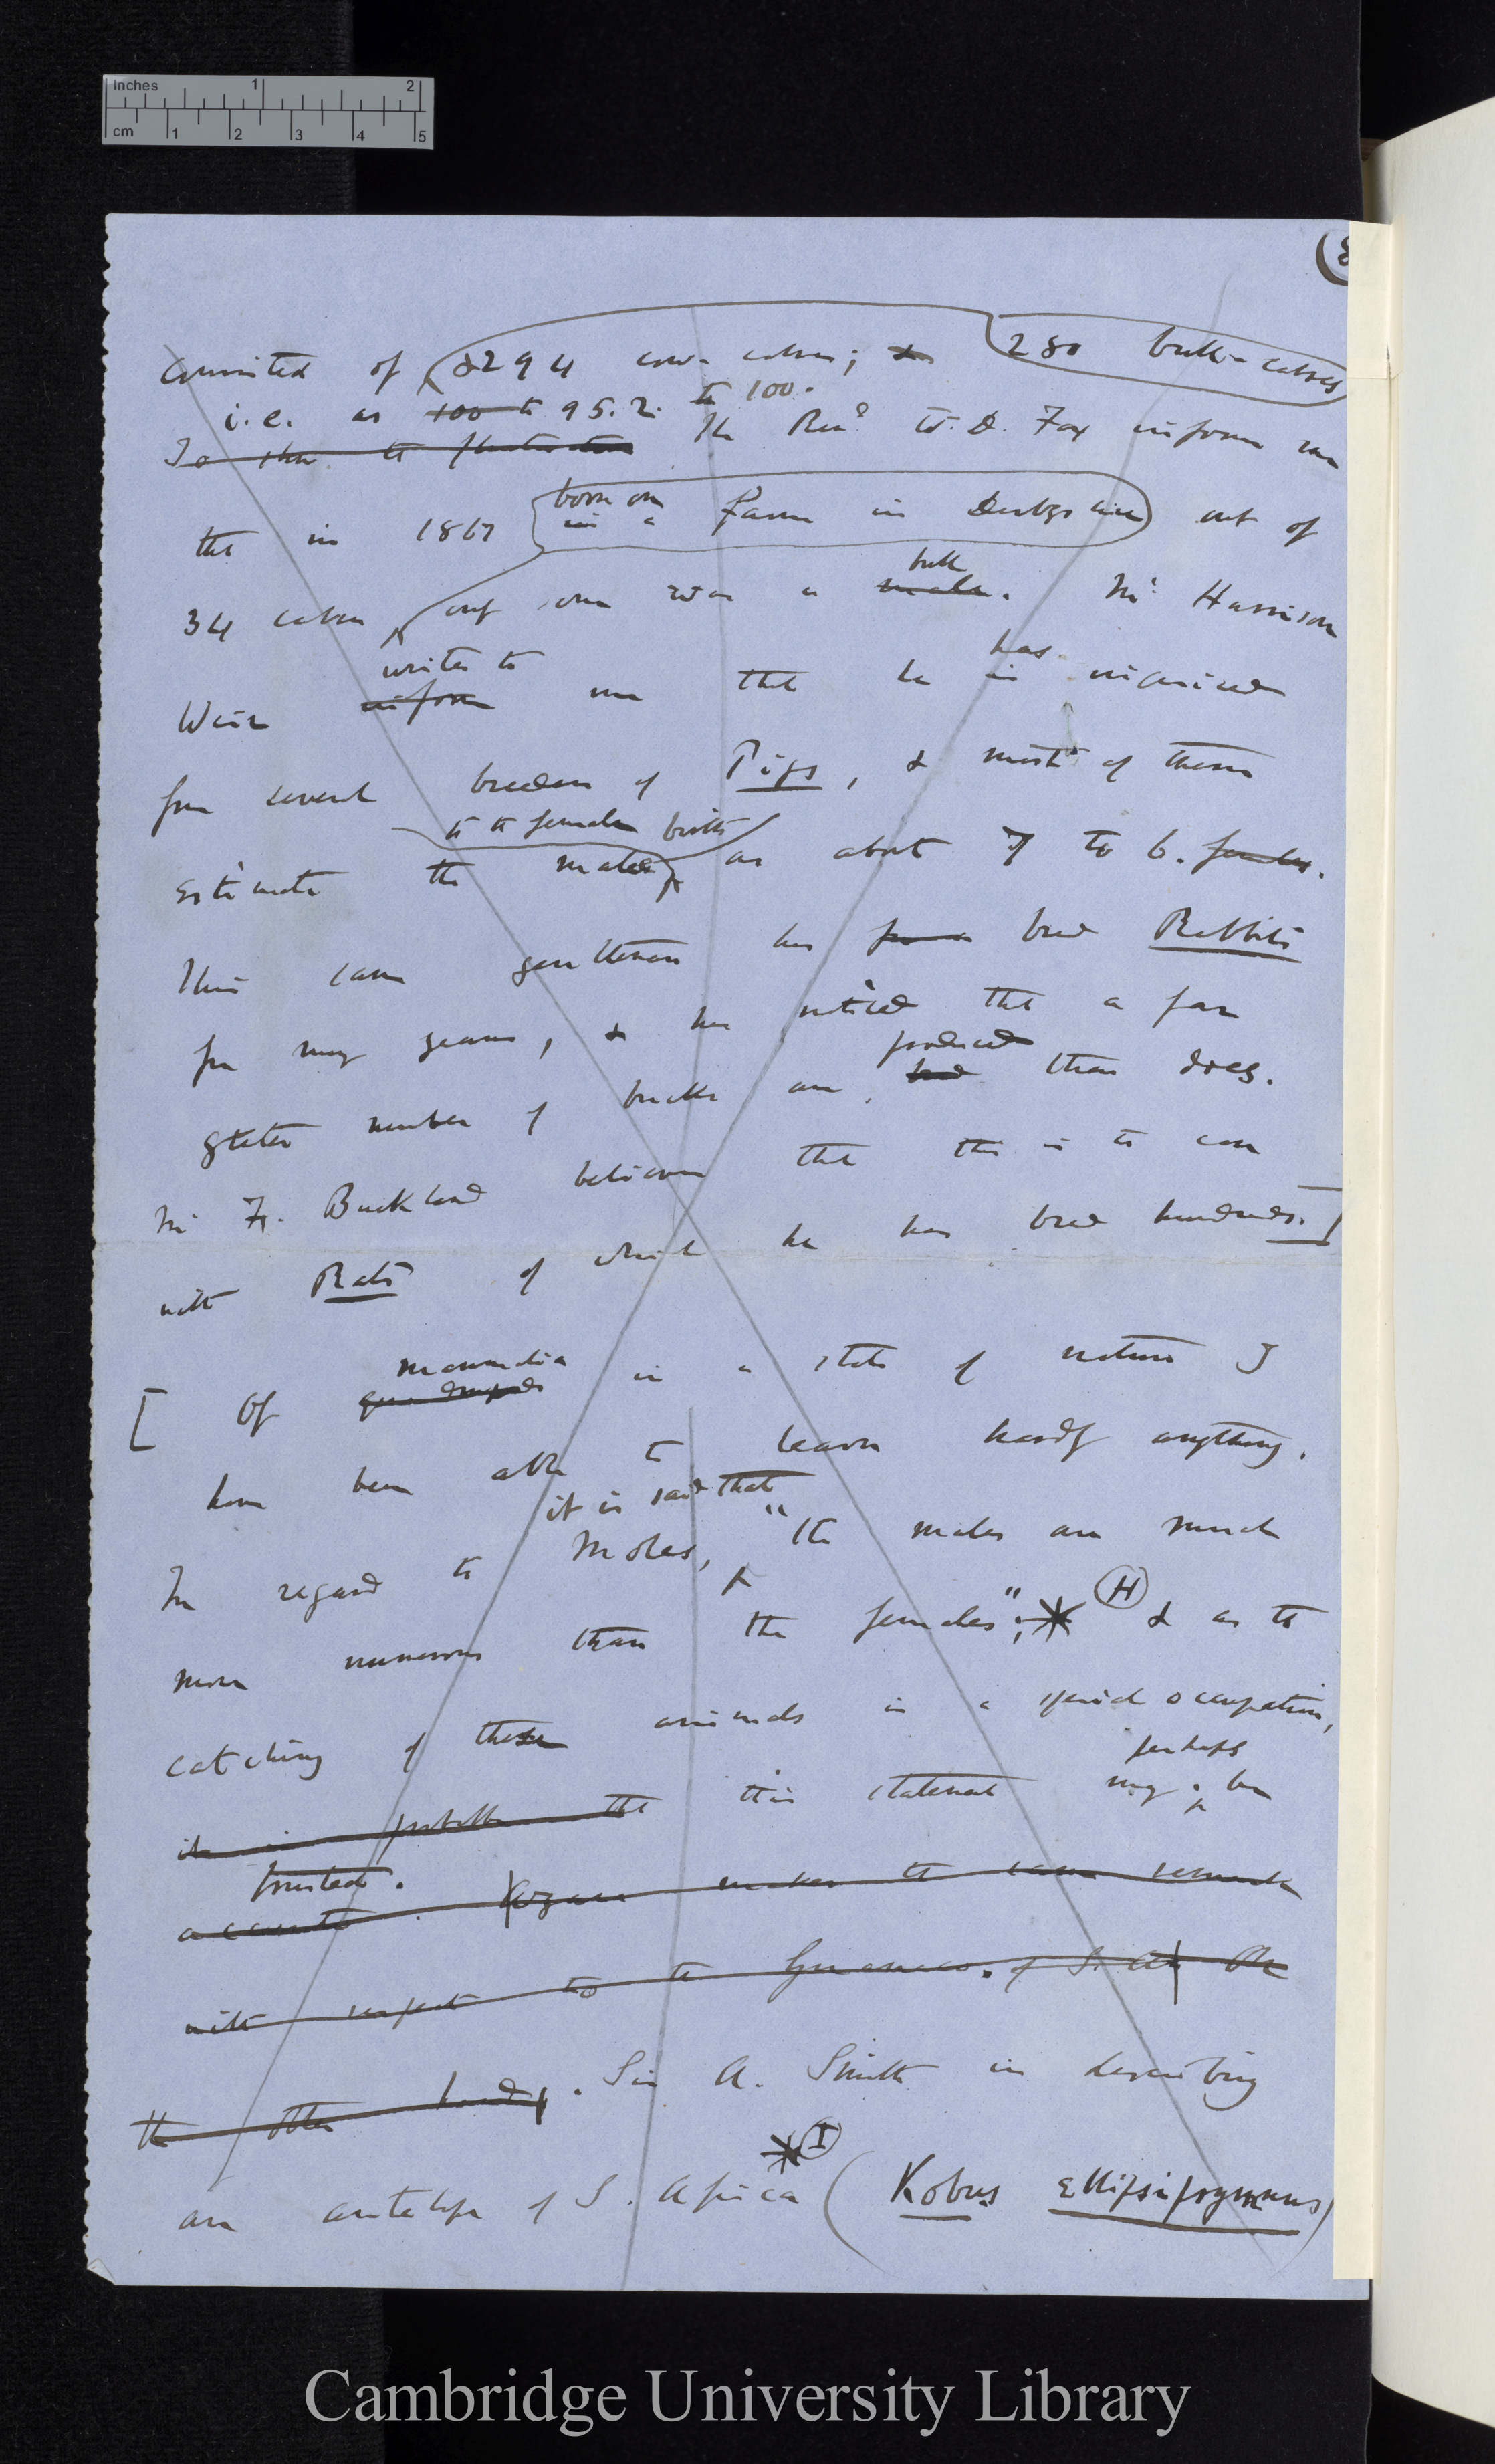 Inches 1 2
cm 1 2 3 4 5
(8
consisted of & 294 cow-calves; & 280 bull-calves
i.e. as 100 to 95.2. to 100.
To show the The Revd W. D. Fox informs me
that in 1867 born on in a farm in Derbyshire out of
34 calves only one was a male. bull Mr Harrison
Weir informs writes to me that he is has inquired
from several breeders of Pigs, & most of them
to the female births
estimate the males as about 7 to 6. females.
This same gentleman has bred Rabbits
for many years, & has noticed that a far
greater number of bucks are bred produced than does.
Mr F. Buckland believes that this is the case
with Rats of which he has bred hundreds.]
[Of quadrupeds mammalia in a state of nature I
have been able to learn hardly anything.
it is said that
In regard to Moles, "the males are much
more numerous than the females"; * (H) & as the
catching of these animals is a special occupation,
perhaps
it is probable that this statement may be
trusted.
accurate. Azara makes the same remark
with respect to the Guanaco of S. A. On
the other hand, Sir A. Smith in describing
an antelope of S. Africa * (I) (Kobus ellipsiprymnus)
Cambridge University Library